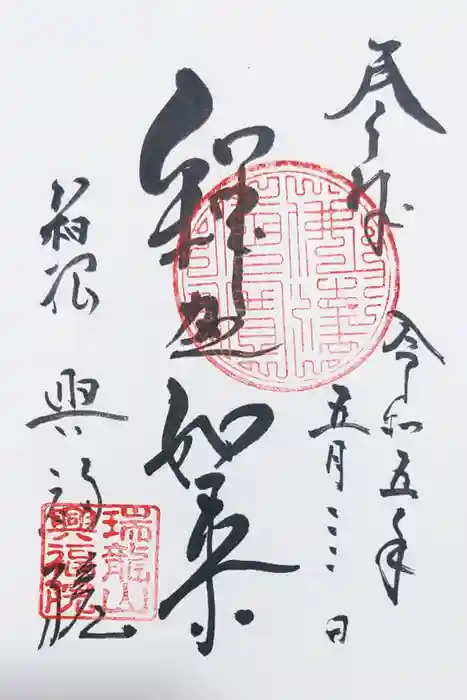 奉拝
令和五年
五月日
釋迦如来
箱根
興福院
瑞龍山
興福院